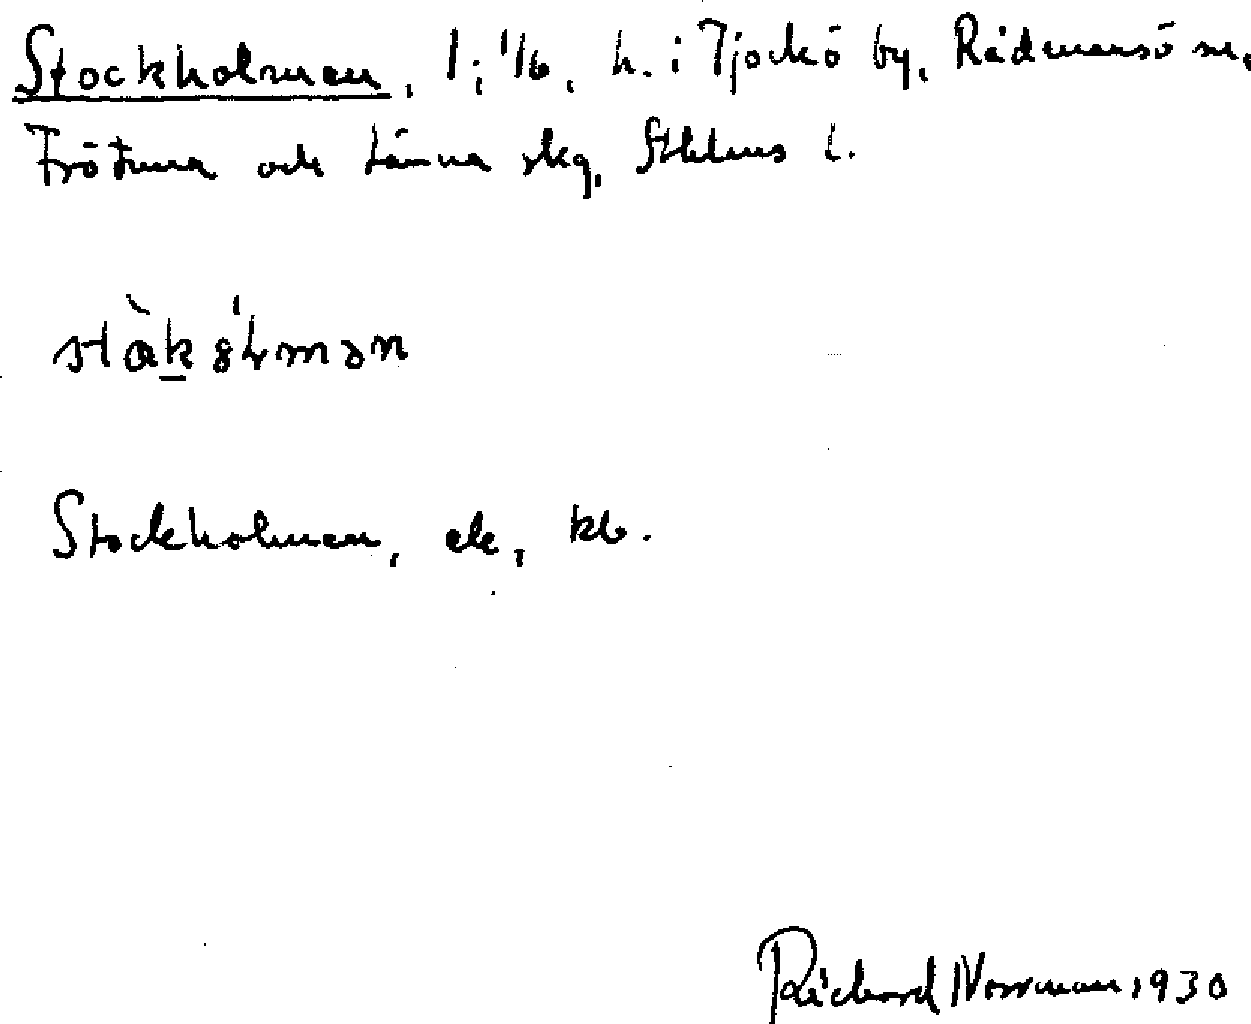 Stockholman, 1; 1/6, h. i Tjockö by, Rådmansö sn,
Frötuna och Länna skg, Sthlms l.
stàkòlmən
Stockholman, ek, kb.
Richard Norrman 1930